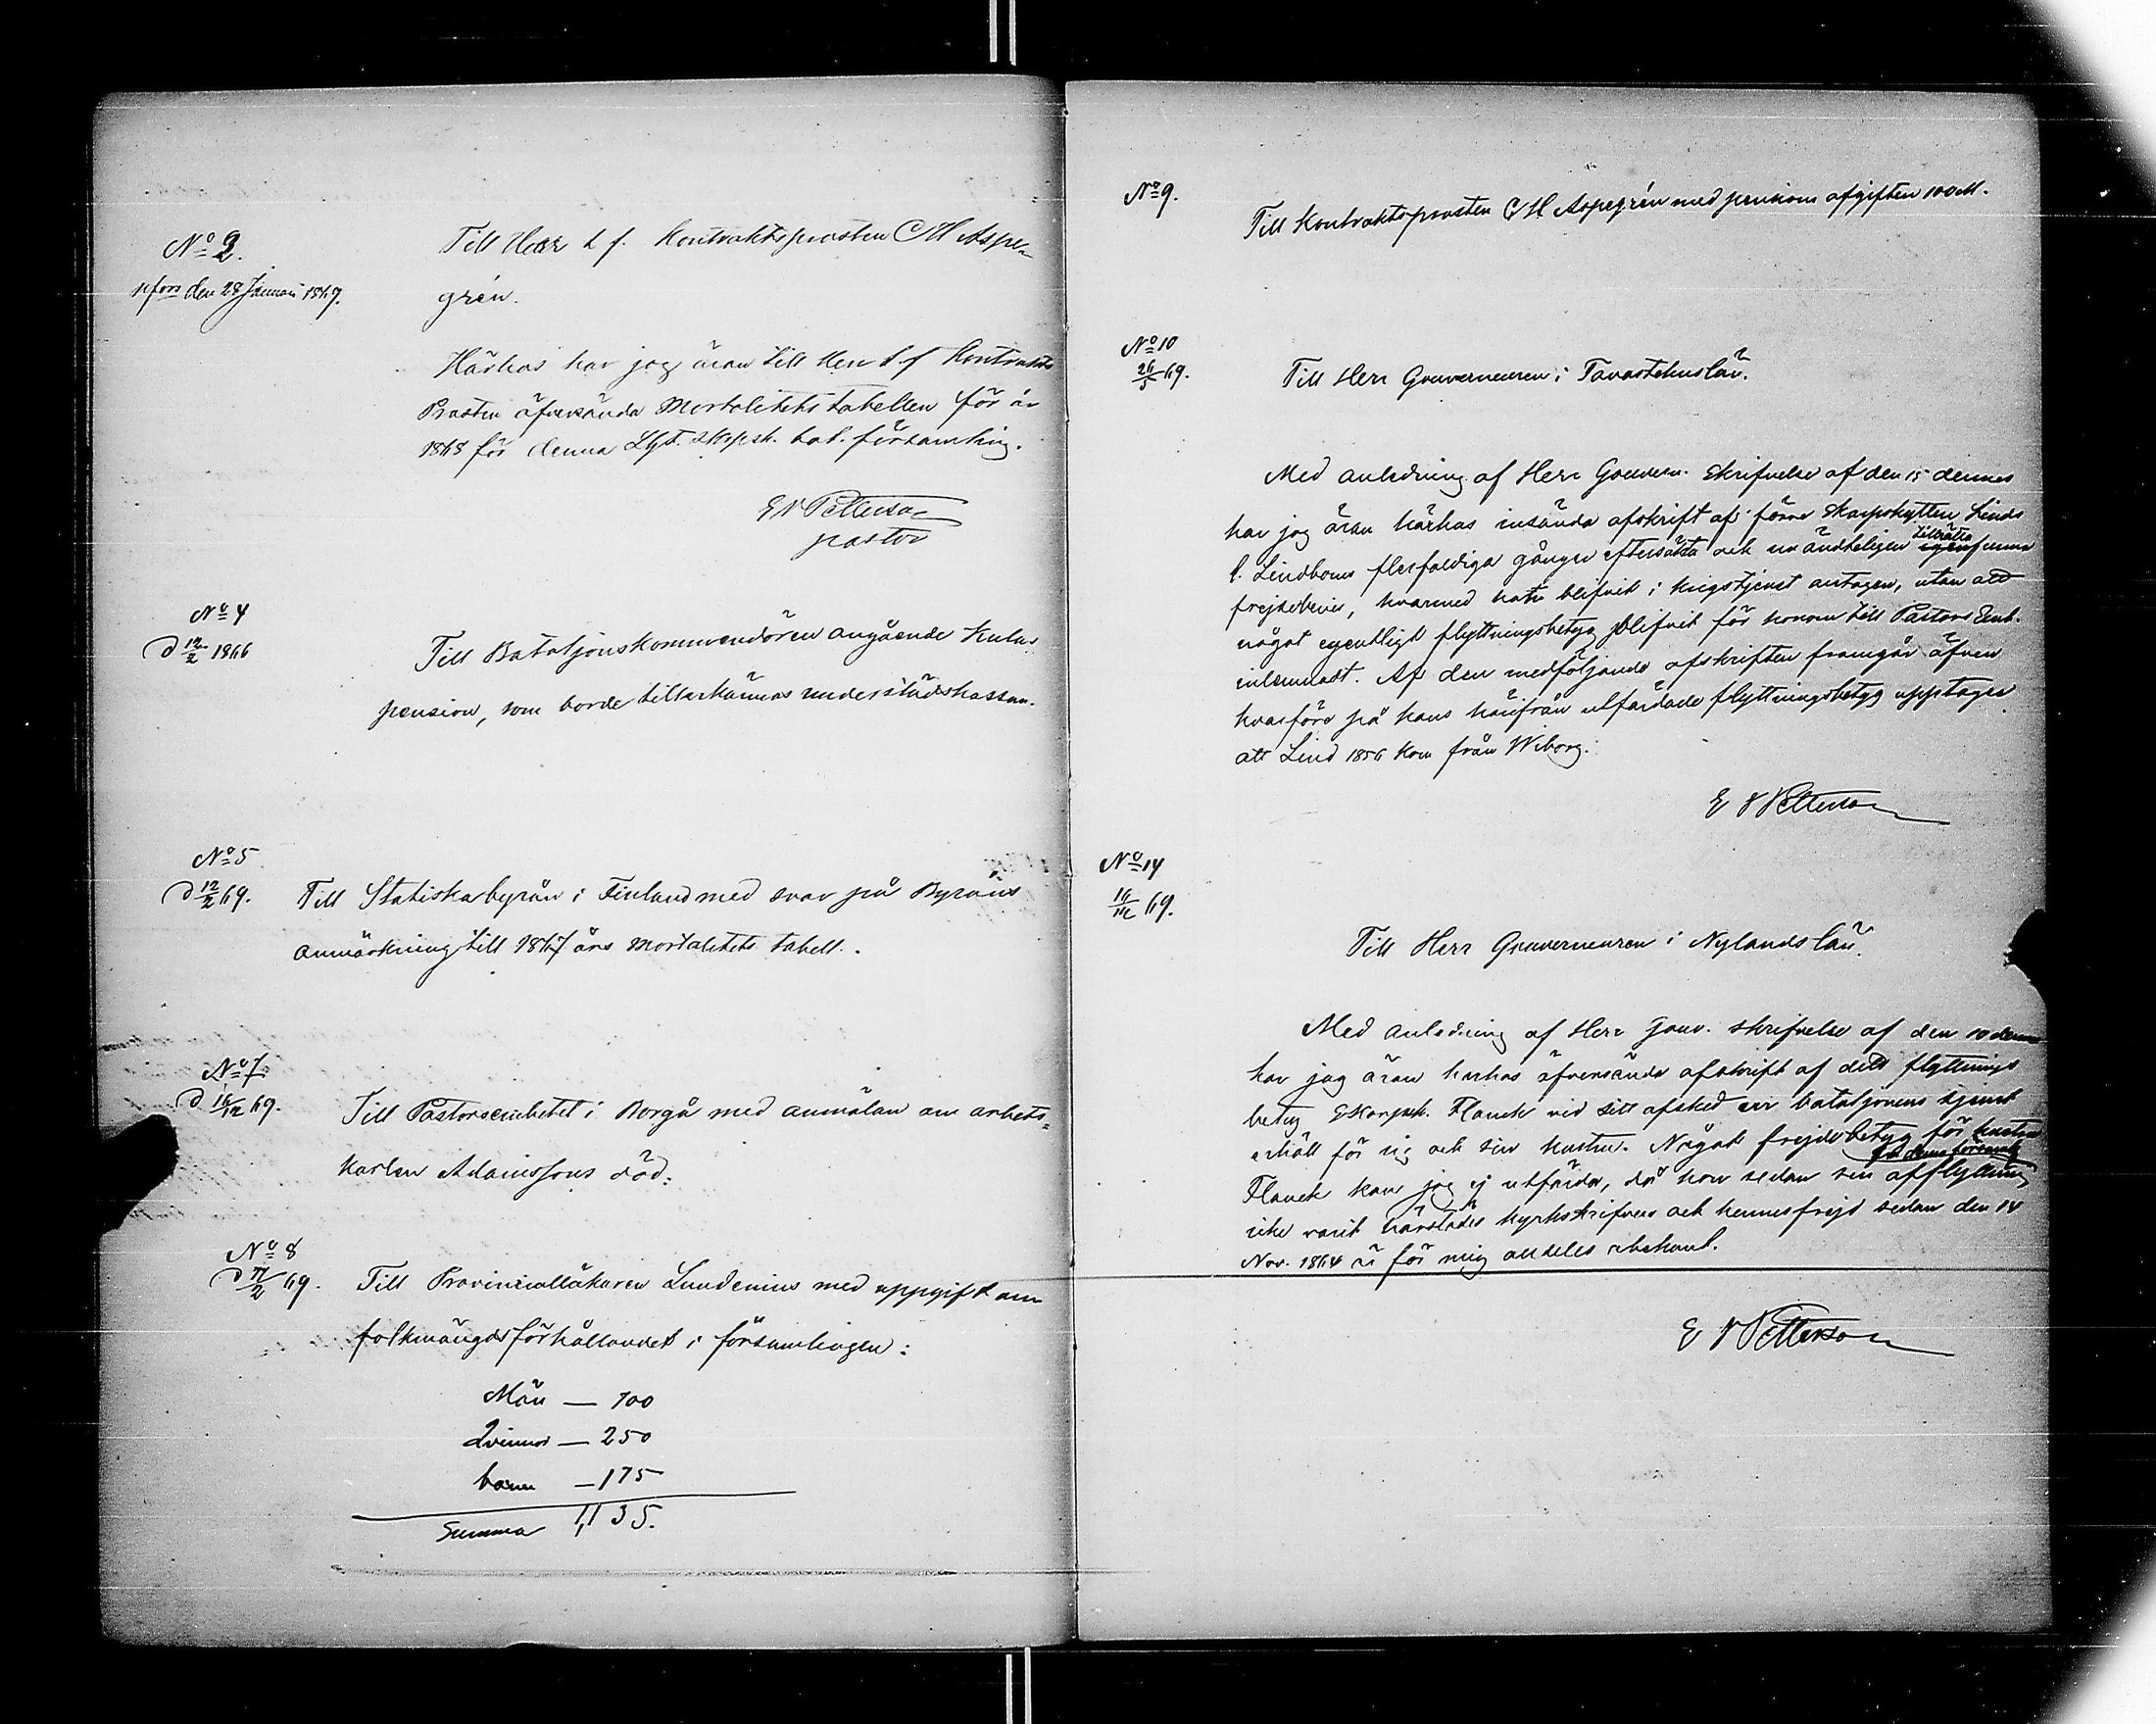 No 2.
Hfors den 28 Januari 1869.
Till Herr t. f. Kontraktsprosten C H Aspe-
grén.
Härhos har jag äran till Herr t. f. Kontrakts
Prosten öfversända Mortalitetstabellen för år
1868 för denna Lgt. Skpsk. bat. församling.
E V Petterson
pastor
No 4
d 12/2 1866
Till Bataljonskommendören angående
pension, som borde tillerkännas understödskassan.
No 5
d 12/2 69.
Till Statiska byrån i Finland med svar på Byråns
anmärkning till 1867 års mortalitets tabell.
No 7
d 16/12 69.
Till Pastorsembetet i Borgå med anmälan om arbets-
karlen Adamssons död.
No 8
d 17/2 69.
Till Provincialläkaren Lundenius med uppgift om
folkmängdsförhållandet i församlingen:
Män — 700
Qvinnor — 250
barn — 175
Summa 1,135.
No 9.
Till Kontraktsprosten C H Aspegrén med pensions afgiften 100 M.
No 10
26/5 69.
Till Herr Gouverneuren i Tavastehus län.
Med anledning af Herr Gouvern. skrifvelse af den 15 dennes
har jag äran härhos insända afskrift af förre Skarpskytten Linds
l. Lindboms flerfaldiga gånger eftersökta och nu ändteligen tillrätta
frejdebevis, hvarmed han blifvit i krigstjenst antagen, utan att
något egentligt flyttningsbetyg blifvit för honom till Pastors Emb.
inlemnadt. Af den medföljande afskriften framgår äfven
hvarföre på hans härifrån utfärdade flyttningsbetyg upptages
att Lind 1856 kom från Wiborg.
E V Petterson
No 14
16/12 69.
Till Herr Gouverneuren i Nylands län.
Med anledning af Herr Gouv. skrifvelse af den 10 dennes
har jag äran härhos öfversända afskrift af det flyttnings
betyg Skarpsk. Flanck vid sitt afsked ur bataljonens tjenst
erhöll för sig och sin hustru. Något frejdebetyg för hustru
från denna församling
Flanck kan jag ej utfärda, då hon sedan sin afflyttning
icke varit härstädes kyrkskrifven och hennes frejd sedan den 14
Nov. 1864 är för mig alldeles obekant.
E V Petterson